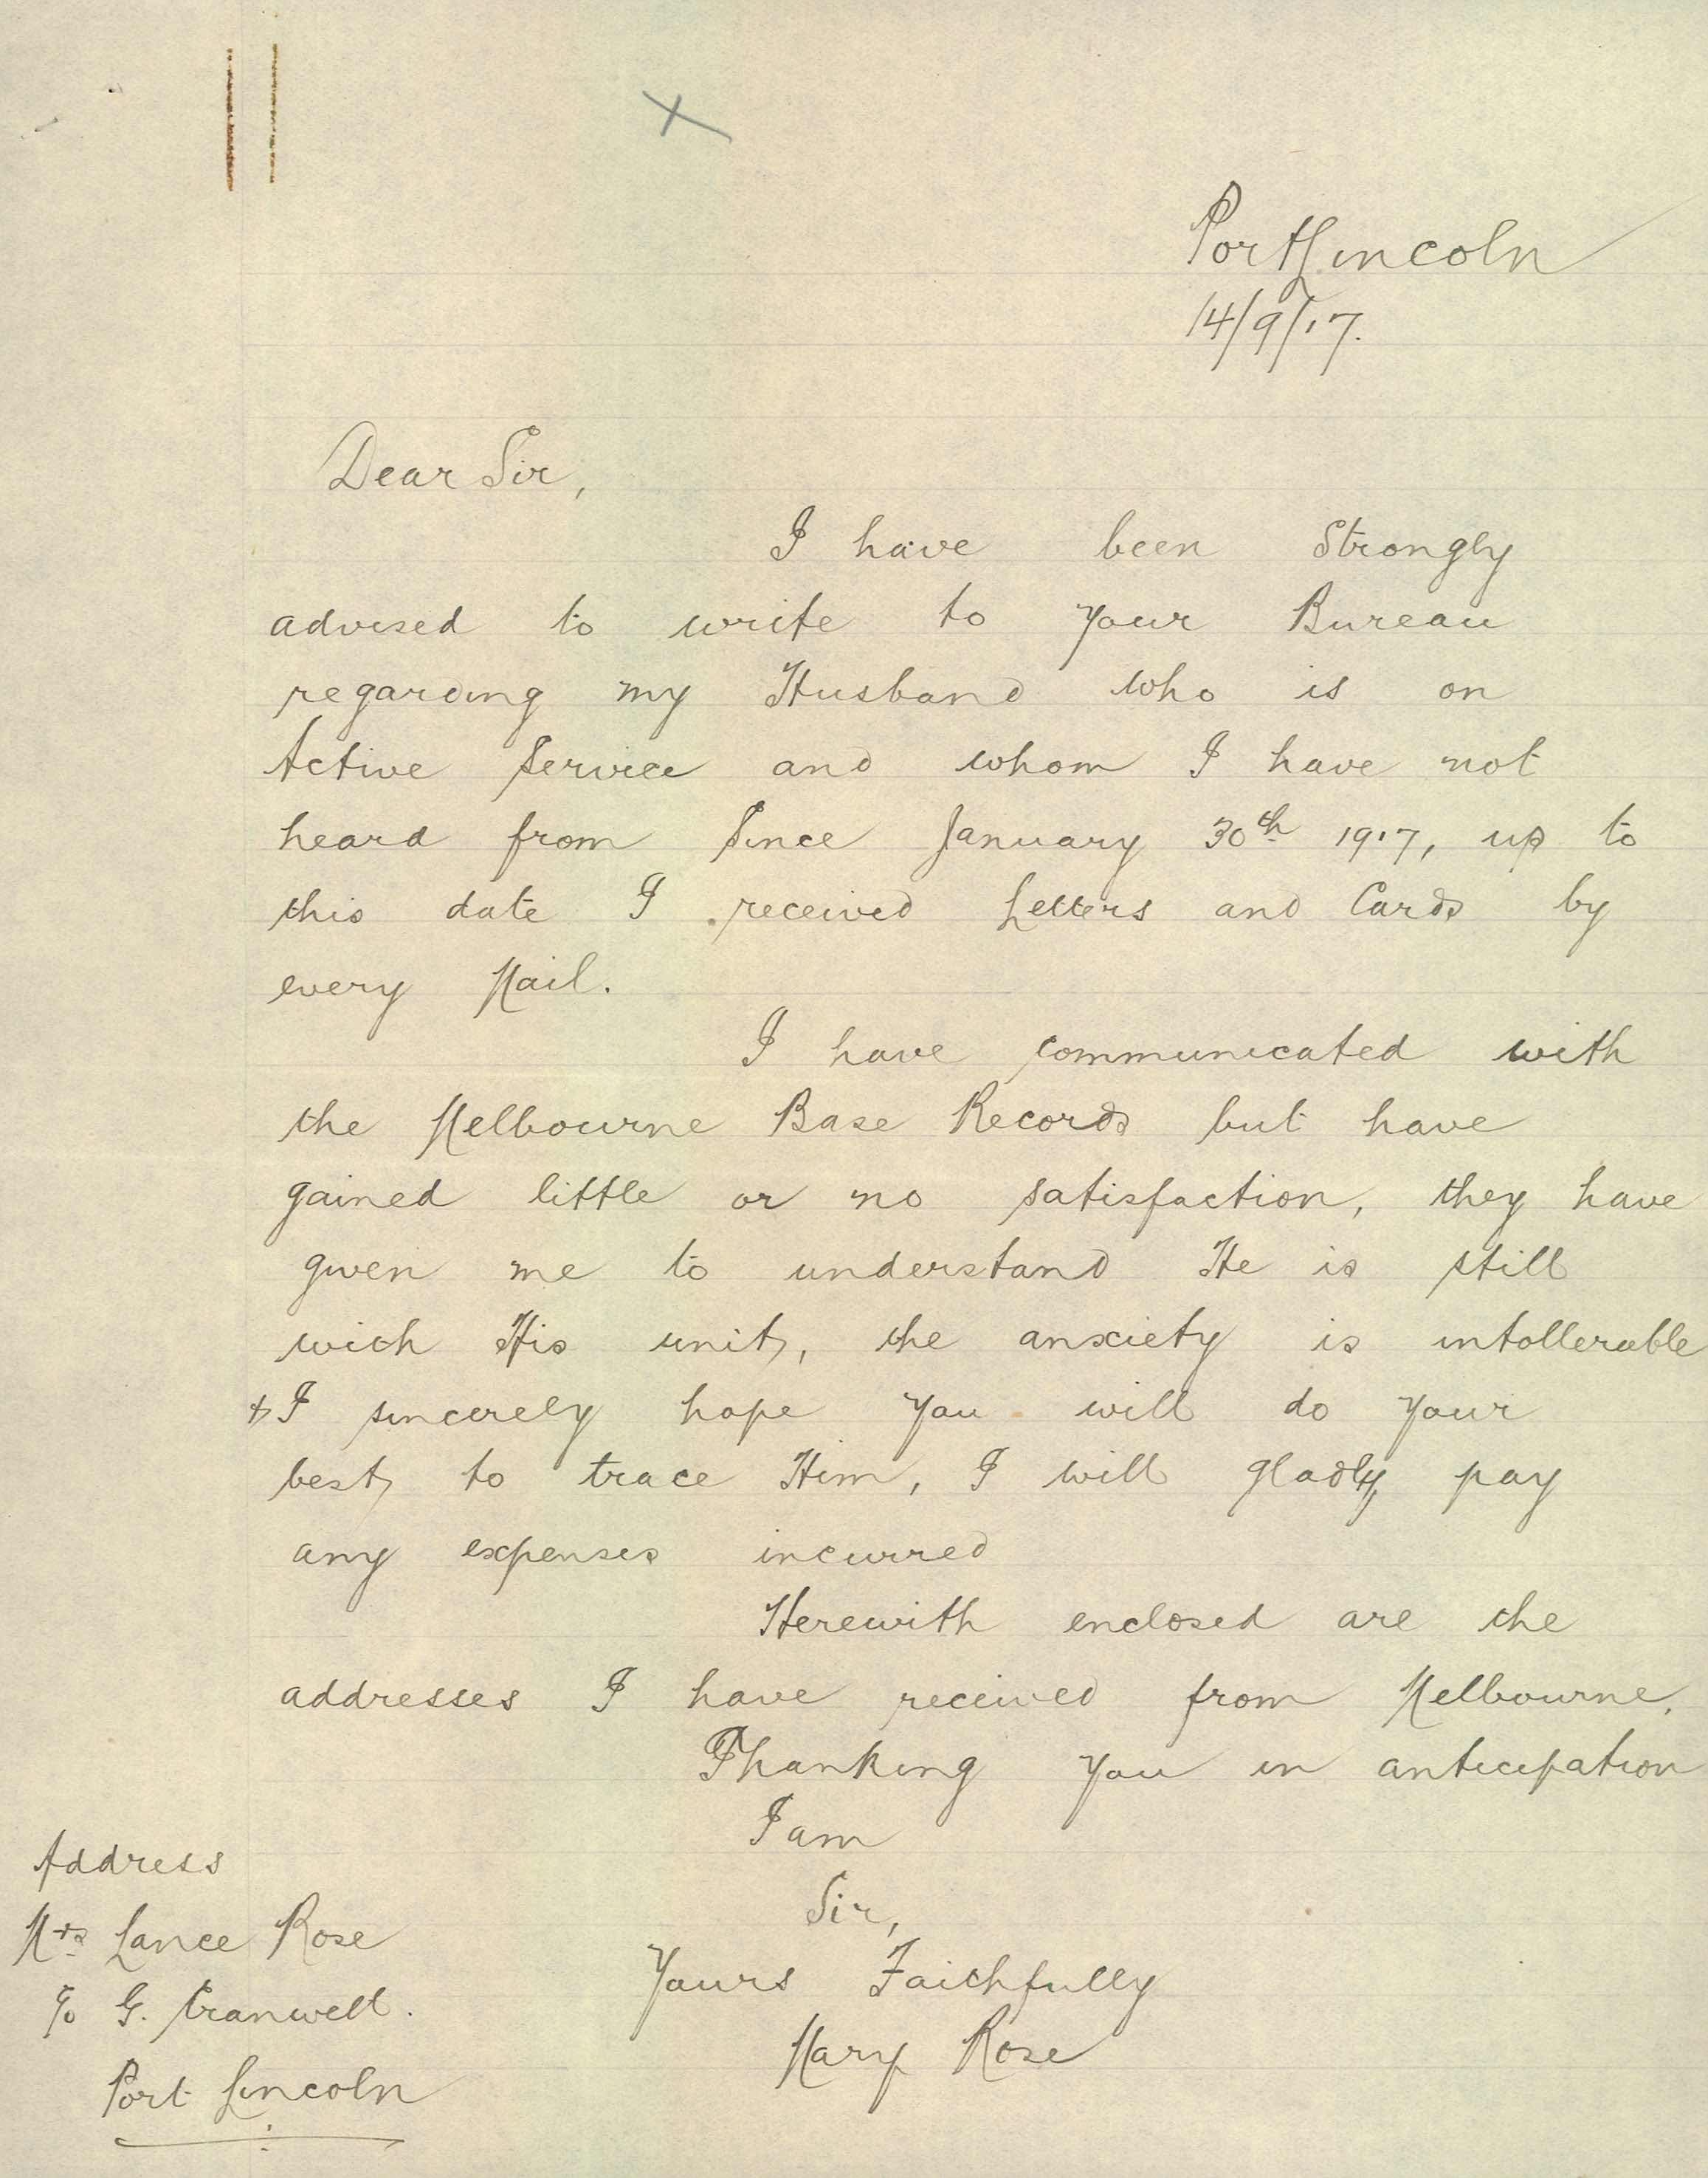 Port Lincoln
14/9/17.
Dear Sir,
I have been Strongly
advised to write to your Bureau
regarding my Husband who is on
Active Service and whom I have not
heard from Since January 30th 1917, up to
this date I received Letters and Cards by
every Mail.
I have communicated with
the Melbourne Base Records but have
gained little or no satisfaction, they have
given me to understand He is still
with His unit, the anxiety is intollerable
& I sincerely hope you will do your
best to trace Him, I will gladly pay
any expenses incurred
Herewith enclosed are the
addresses I have received from Melbourne.
Thanking you in anticipation
I am
Sir,
Yours Faithfully
Mary Rose
Address
Mrs Lance Rose
c/o G. Cranwell.
Port Lincoln